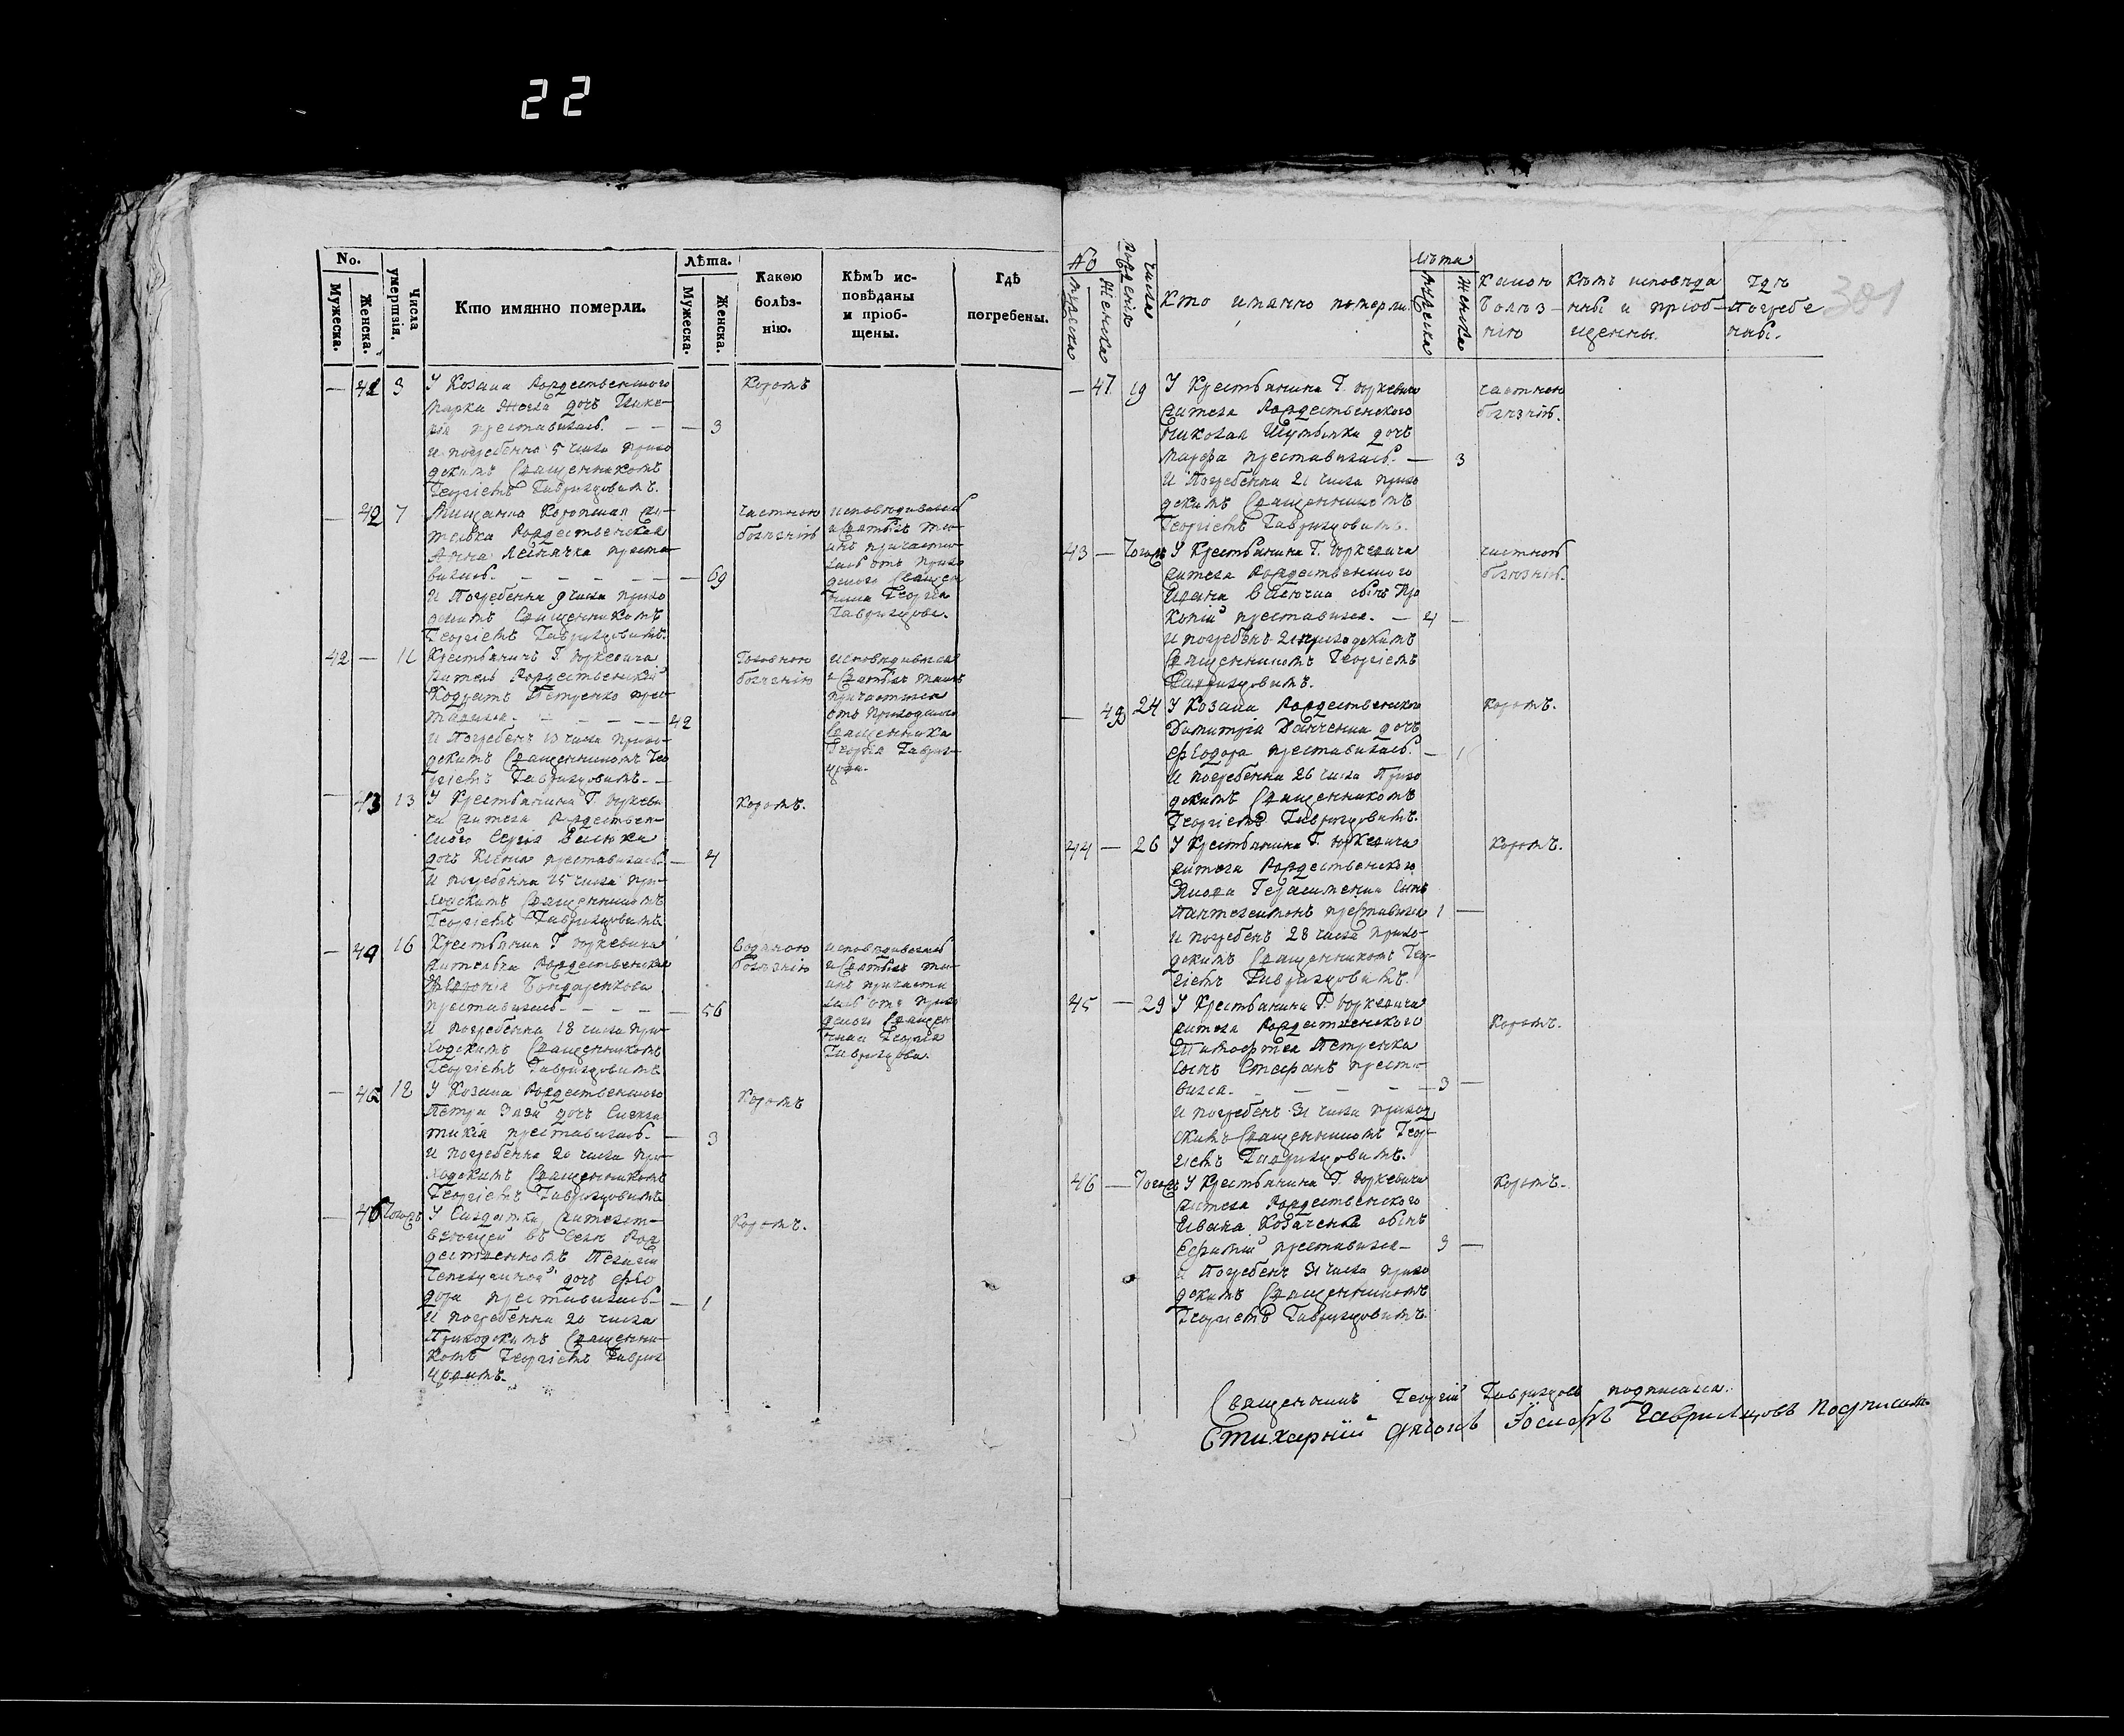 22
No.
Мужеска.
Женска.
Числа умершія.
Кто имянно померли.
Лѣта.
Мужеска.
Женска.
Какою болѣз-
нію.
Кѣмъ ис-
повѣданы
и пріоб-
щены.
Гдѣ
погребены.
— 3 У Козака Рождественского
Марка дочь
преставилась. — — — 3
и погребенна 5 числа прихо
Коромъ
дскимъ Священникомъ
Георгіемъ Гаврилцовимъ.
— 42 7 Мищанка жи-
телька Рождественская
Анна преста-
вилась. — — — — — 69
И Погребенна 9 числа прихо
дскимъ Священникомъ
Георгіемъ Гаврилцовимъ.
частною
болѣзнію
исповѣдивалась
и Святыхъ та-
инъ причасти-
лась отъ прихо
дского Священ
ника Георгія
Гаврилцова.
42 — 11 Крестьянинъ Г. Юркевича
житель Рождественскій
Кодратъ Петренко прес-
тавился. — — — — 42
И Погребенъ 13 числа прихо-
дскимъ Священникомъ Гео
ргіемъ Гаврилцовимъ. —
Головною
болѣзнію
исповѣдивался
и Святыхъ таинъ
причастился
отъ Приходского
Священника
Георгія Гаврил-
цова.
— 43 13 У Крестьянина Г. Юркеви
ча жителя Рождествен-
ского Сергѣя Велючка
дочь Ксенія преставилась. — 4
и погребенна 15 числа при-
ходскимъ Священникомъ
Георгіемъ Гаврилцовимъ
Коромъ.
— 44 16 Крестьянка Г Юркевича
жителька Рождественская
Бондаренкова
преставилась. — — — — 56
и погребенна 18 числа при-
ходскимъ Священникомъ
Георгіемъ Гаврилцовимъ
Водяною
болѣзнію
исповѣдивалась
и Святыхъ та-
инъ причасти
лась отъ прихо
дского Священ
ника Георгія
Гаврилцова.
— 45 18 У Козака Рождественского
Петра дочь
преставилась. — 3
и погребенна 20 числа при-
ходскимъ Священникомъ
Георгіемъ Гаврилцовимъ
Коромъ
— 46 Тогожъ У Солдатки жительст-
вующей въ Селѣ Рож
дественномъ Пелагіи
дочь Фео
дора преставилась — 1
и погребенна 20 числа
Приходскимъ Священни-
комъ Георгіемъ Гаврил
цовимъ.
Коромъ.
381
No
мужеска
женска
числа
Кто имянно померли.
лѣта
мужеска
женска
Какою
болѣз-
нію
Кѣмъ исповѣда
нны и пріоб-
щенны.
гдѣ
погребе
ны.
— 47 19 У Крестьянина Г. Юркевича
жителя Рождественского
Николая дочь
Марфа преставилась. — 3
И Погребенна 21 числа прихо
дскимъ Священникомъ
Георгіемъ Гаврилцовимъ.
частною
болѣзнію.
43 — Тогожъ У Крестьянина Г. Юркевича
жителя Рождественского
Ивана Велючка сынъ Про
копій преставился. — 4 —
и погребенъ 21 приходскимъ
Священникомъ Георгіемъ
Гаврилцовимъ.
частною
болѣзнію.
— 48 24 У Козака Рождественского
Димитрія Данченка дочь
Феодора преставилась. — 1
и погребенна 26 числа Прихо
дскимъ Священникомъ
Георгіемъ Гаврилцовимъ.
Коромъ.
44 — 26 У Крестьянина Г. Юркевича
жителя Рождественского
Якова Герасименка Сынъ
Пантелеимонъ преставился 1 —
и погребенъ 28 числа прихо-
дскимъ Священникомъ Геор-
гіемъ Гаврилцовимъ.
Коромъ.
45 — 29 У Крестьянина Г. Юркевича
жителя Рождественского
Тимофтея Петренка
сынъ Стефанъ преста-
вился. — — — — 3 —
и погребенъ 31 числа приход
скимъ Священникомъ Геор-
гіемъ Гаврилцовимъ.
Коромъ.
46 — Тогожъ У Крестьянина Г. Юркевича
жителя Рождественского
Ивана Козаченка сынъ
Ефимій преставился — 3 —
и Погребенъ 31 числа прихо
дскимъ Священникомъ
Георгіемъ Гаврилцовимъ.
Коромъ.
Священникъ Георгій Гаврилцовъ подписался.
Стихарній дяконъ Іосифъ Гаврилцовъ подписался